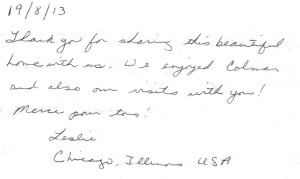 19/8/13
Thank you for sharing this beautiful
home with us. We enjoyed Colmar
and also our visits with you!
Merci pour tous!
Leslie
Chicago, Illinois USA